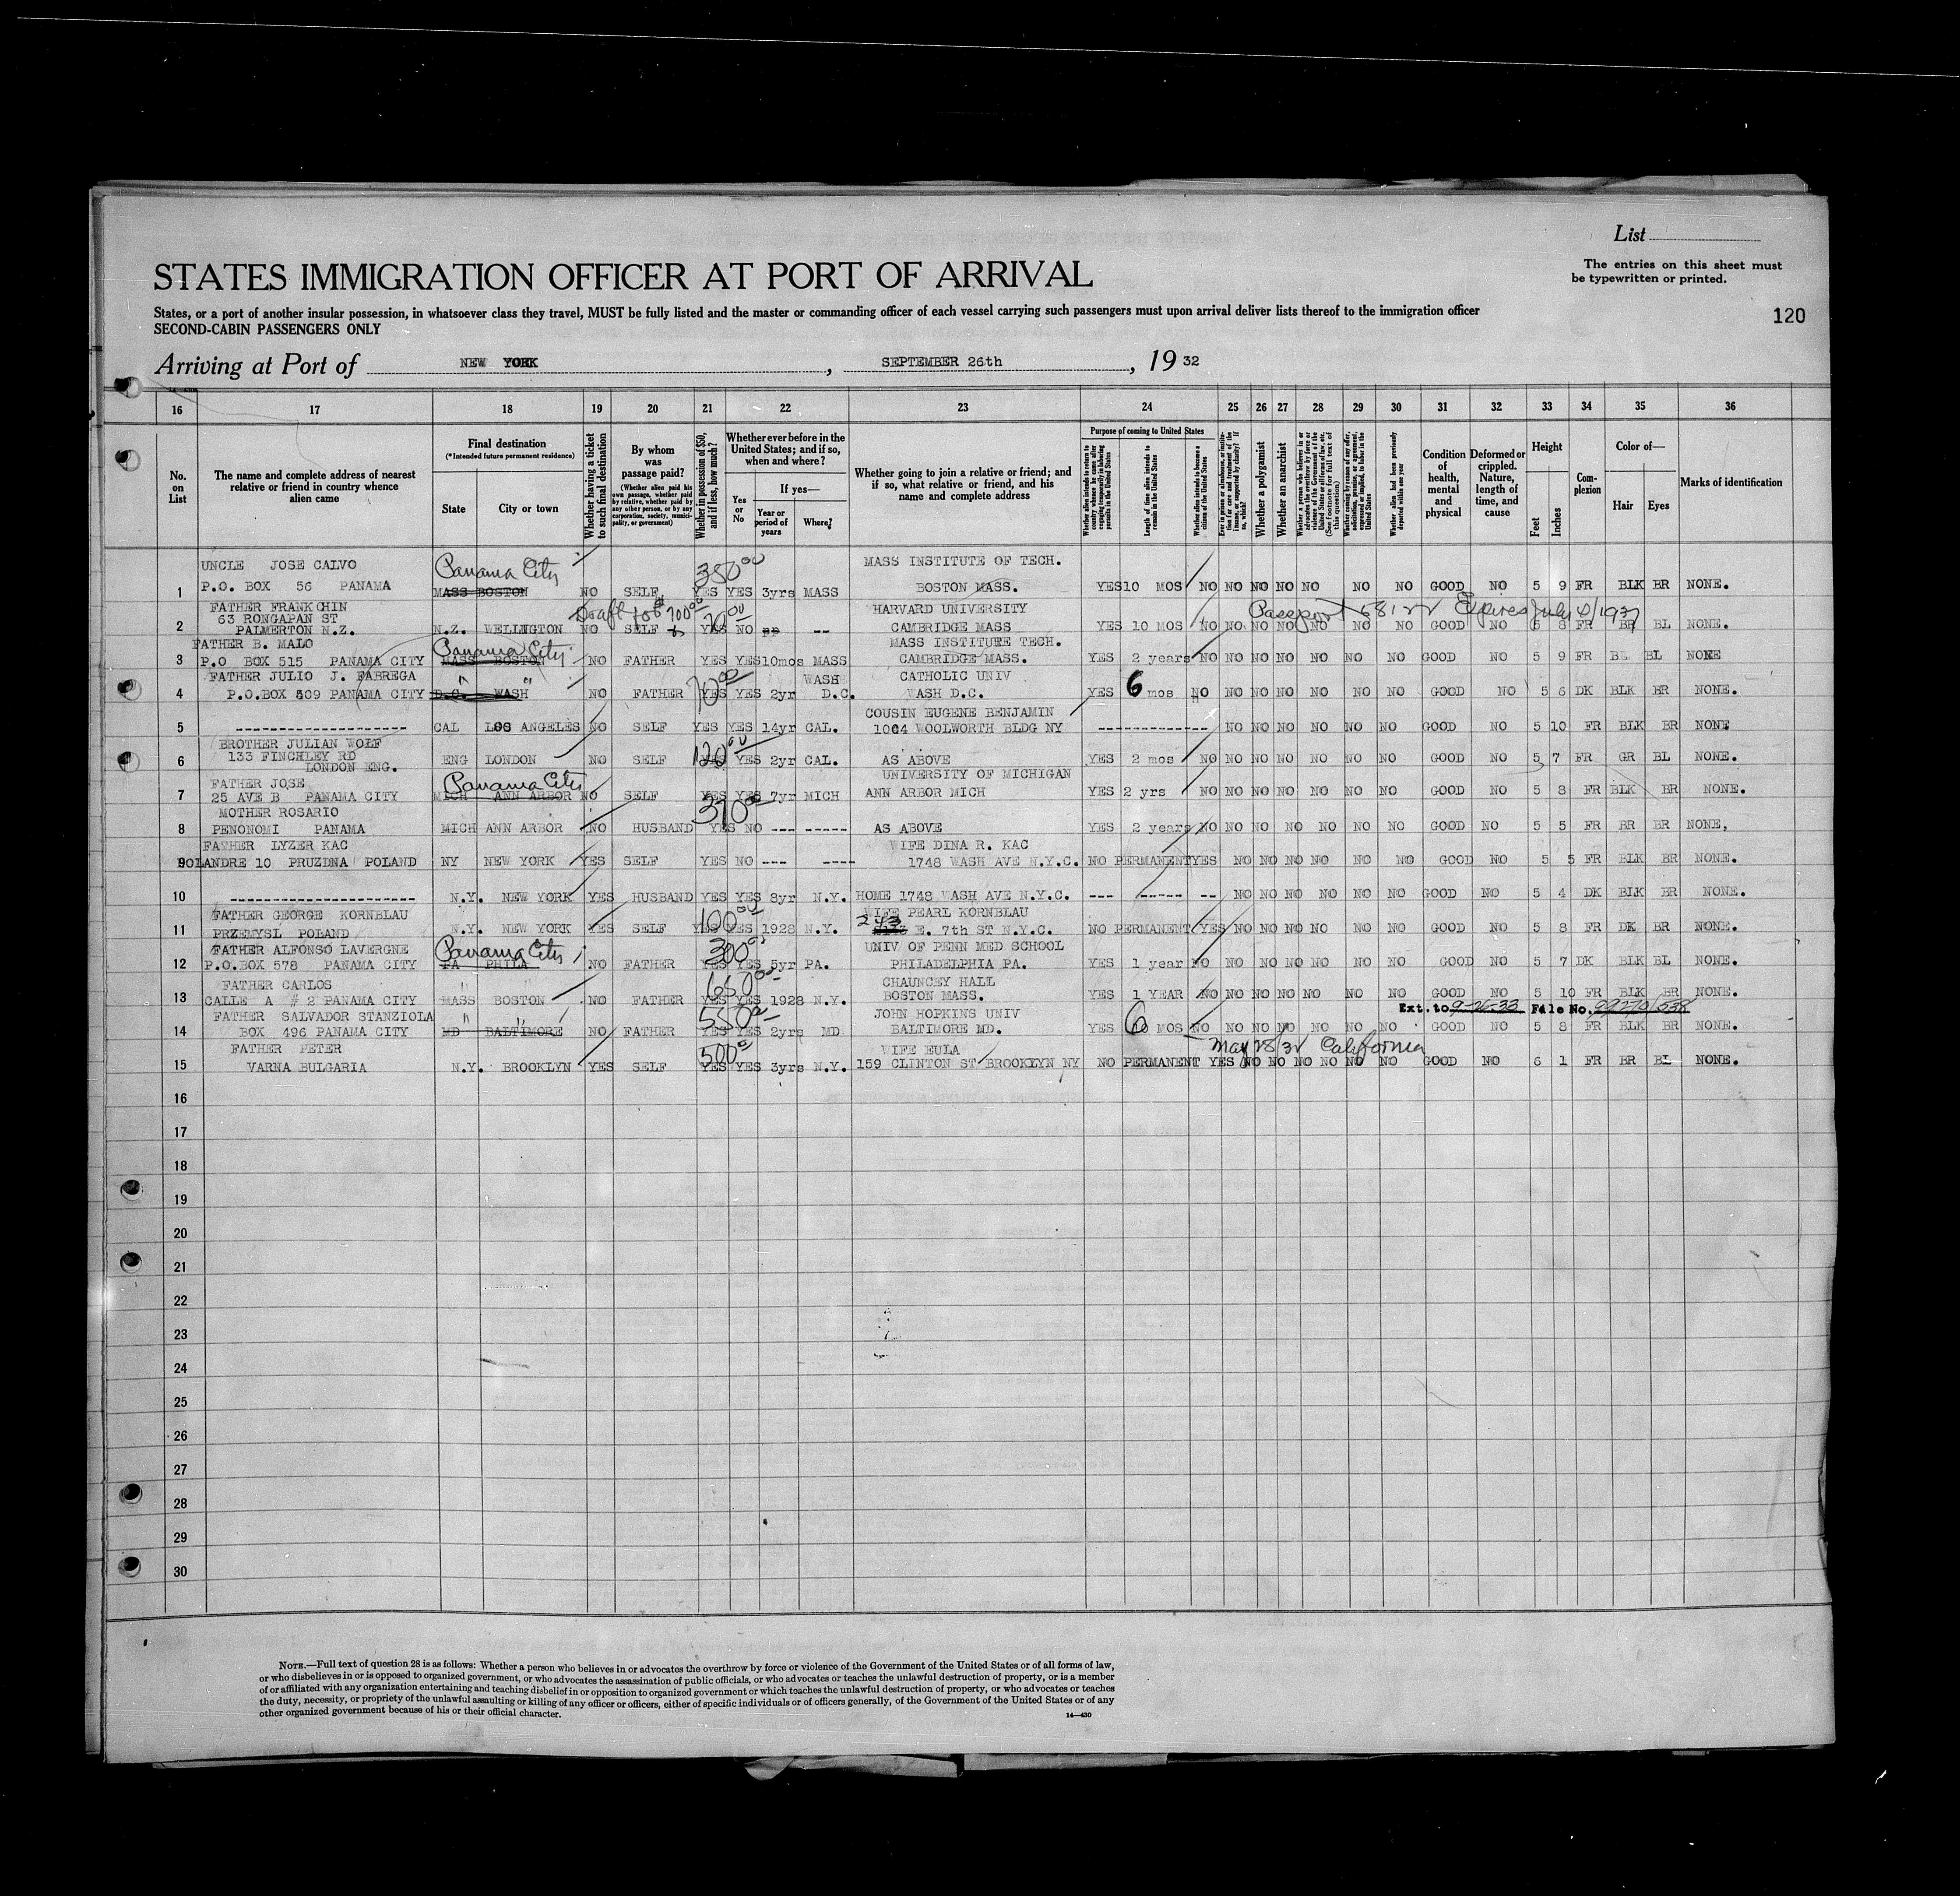 List
The entries on this sheet must
be typewritten or printed.
STATES IMMIGRATION OFFICER AT PORT OF ARRIVAL
States, or a port of another insular possession, in whatsoever class they travel, MUST be fully listed and the master or commanding officer of each vessel carrying such passengers must upon arrival deliver lists thereof to the immigration officer
SECOND-CABIN PASSENGERS ONLY
120
Arriving at Port of NEW YORK, SEPTEMBER 26th, 1932
16 17 18 19 20 21 22 23 24 25 26 27 28 29 30 31 32 33 34 35 36
No. on List
The name and complete address of nearest
relative or friend in country whence
alien came
Final destination
(*Intended future permanent residence)
State
City or town
Whether having a ticket to such final destination
By whom
was
passage paid?
(Whether alien paid his
own passage, whether paid
by relative, whether paid by
any other person, or by any
corporation, society, munici-
pality, or government)
Whether in possession of $50,
and if less, how much?
Whether ever before in the
United States; and if so,
when and where?
Yes
or
No
If yes—
Year or
period of
years
Where?
Whether going to join a relative or friend; and
if so, what relative or friend, and his
name and complete address
Purpose of coming to United States
Length of time alien intends to
remain in the United States
Whether alien intends to become a
citizen of the United States
Whether a polygamist
Whether an anarchist
Whether alien had been previously
deported within one year
Condition
of
health,
mental
and
physical
Deformed or
crippled.
Nature,
length of
time, and
cause
Height
Feet
Inches
Com-
plexion
Color of—
Hair
Eyes
Marks of identification
UNCLE JOSE CALVO Panama City 350.00 MASS INSTITUTE OF TECH.
1 P.O. BOX 56 PANAMA MASS BOSTON NO SELF YES YES 3yrs MASS BOSTON MASS. YES 10 MOS NO NO NO NO NO NO NO GOOD NO 5 9 FR BLK BR NONE.
FATHER FRANK CHIN Draft for 700 HARVARD UNIVERSITY Passport Expires July
63 RONGAPAN ST
2 PALMERTON N.Z. N.Z. WELLINGTON NO SELF YES NO -- CAMBRIDGE MASS YES 10 MOS NO NO NO NO NO NO NO GOOD NO 5 8 FR BR BL NONE.
FATHER B. MALO Panama City MASS INSTITURE TECH.
3 P.O BOX 515 PANAMA CITY MASS BOSTON NO FATHER YES YES 10mos MASS CAMBRIDGE MASS. YES 2 years NO NO NO NO NO NO NO GOOD NO 5 9 FR BL BL NONE
FATHER JULIO J. FABREGA " " 70.00 WASH CATHOLIC UNIV
4 P.O.BOX 509 PANAMA CITY D.C. WASH NO FATHER YES YES 2yr D.C. WASH D.C. YES 6 mos NO NO NO NO NO NO NO GOOD NO 5 6 DK BLK BR NONE.
COUSIN EUGENE BENJAMIN
5 -------------------- CAL LOS ANGELES NO SELF YES YES 14yr CAL. 1004 WOOLWORTH BLDG NY ------------- NO NO NO NO NO NO GOOD NO 5 10 FR BLK BR NONE
BROTHER JULIAN WOLF
133 FINCHLEY RD
6 LONDON ENG. ENG LONDON NO SELF 120.00 YES 2yr CAL. AS ABOVE YES 2 mos NO NO NO NO NO NO NO GOOD NO 5 7 FR GR BL NONE.
FATHER JOSE Panama City UNIVERSITY OF MICHIGAN
7 25 AVE B PANAMA CITY MICH ANN ARBOR NO SELF YES YES 7yr MICH ANN ARBOR MICH YES 2 yrs NO NO NO NO NO NO NO GOOD NO 5 8 FR BLK BR NONE.
MOTHER ROSARIO 370.00
8 PENONOMI PANAMA MICH ANN ARBOR NO HUSBAND YES NO --- ----- AS ABOVE YES 2 years NO NO NO NO NO NO NO GOOD NO 5 5 FR BR BR NONE,
FATHER LYZER KAC WIFE DINA R. KAC
9 POLANDRE 10 PRUZDNA POLAND NY NEW YORK YES SELF YES NO --- ---- 1748 WASH AVE N.Y.C. NO PERMANENT YES NO NO NO NO NO NO GOOD NO 5 5 FR BLK BR NONE.
10 --------------------- N.Y. NEW YORK YES HUSBAND YES YES 8yr N.Y. HOME 1748 WASH AVE N.Y.C. --- ----- -- NO NO NO NO NO NO GOOD NO 5 4 DK BLK BR NONE.
FATHER GEORGE KORNBLAU 100.00 WIFE PEARL KORNBLAU
11 PRZEMYSL POLAND N.Y. NEW YORK YES SELF YES YES 1928 N.Y. 243 E. 7th ST N.Y.C. NO PERMANENT YES NO NO NO NO NO NO GOOD NO 5 8 FR DK BR NONE.
FATHER ALFONSO LAVERGNE Panama City 300 UNIV OF PENN MED SCHOOL
12 P.O.BOX 578 PANAMA CITY PA PHILA NO FATHER YES YES 5yr PA. PHILADELPHIA PA. YES 1 year NO NO NO NO NO NO NO GOOD NO 5 7 DK BLK BL NONE.
FATHER CARLOS 650.00 CHAUNCEY HALL
13 CALLE A # 2 PANAMA CITY MASS BOSTON NO FATHER YES YES 1928 N.Y. BOSTON MASS. YES 1 YEAR NO NO NO NO NO NO NO GOOD NO 5 10 FR BLK BR NONE.
FATHER SALVADOR STANZIOLA " " 550 JOHN HOPKINS UNIV Ext. to 9-26-33 File No.
14 BOX 496 PANAMA CITY MD BALTIMORE NO FATHER YES YES 2yrs MD BALTIMORE MD. YES 6 MOS NO NO NO NO NO NO NO GOOD NO 5 8 FR BLK BR NONE.
FATHER PETER 500 WIFE EULA May 28/32 California
15 VARNA BULGARIA N.Y. BROOKLYN YES SELF YES YES 3yrs N.Y. 159 CLINTON ST BROOKLYN NY NO PERMANENT YES NO NO NO NO NO NO GOOD NO 6 1 FR BR BL NONE.
16
17
18
19
20
21
22
23
24
25
26
27
28
29
30
NOTE.—Full text of question 28 is as follows: Whether a person who believes in or advocates the overthrow by force or violence of the Government of the United States or of all forms of law,
or who disbelieves in or is opposed to organized government, or who advocates the assassination of public officials, or who advocates or teaches the unlawful destruction of property, or is a member
of or affiliated with any organization entertaining and teaching disbelief in or opposition to organized government or which teaches the unlawful destruction of property, or who advocates or teaches
the duty, necessity, or propriety of the unlawful assaulting or killing of any officer or officers, either of specific individuals or of officers generally, of the Government of the United States or of any
other organized government because of his or their official character.
14—430